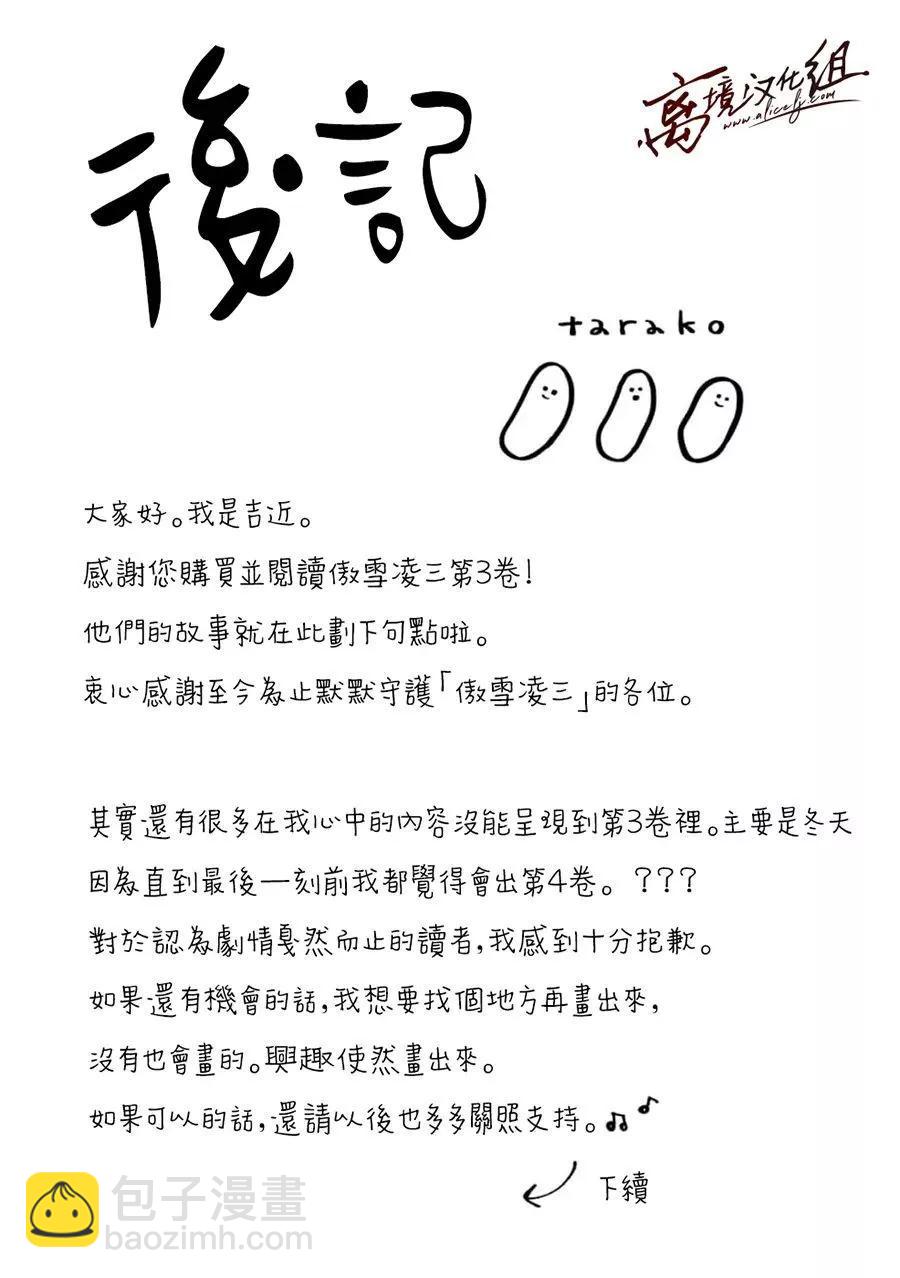 後記
离境汉化组
www.alicelj.com
tarako
大家好。我是吉近。
感謝您購買並閱讀傲雪凌三第3卷!
他們的故事就在此劃下句點啦。
衷心感謝至今為止默默守護「傲雪凌三」的各位。
其實還有很多在我心中的內容沒能呈現到第3卷裡。主要是冬天
因為直到最後一刻前我都覺得會出第4卷。???
對於認為劇情戛然而止的讀者,我感到十分抱歉。
如果還有機會的話,我想要找個地方再畫出來,
沒有也會畫的。興趣使然畫出來。
如果可以的話,還請以後也多多關照支持。♫♪
下續
包子漫畫
baozimh.com